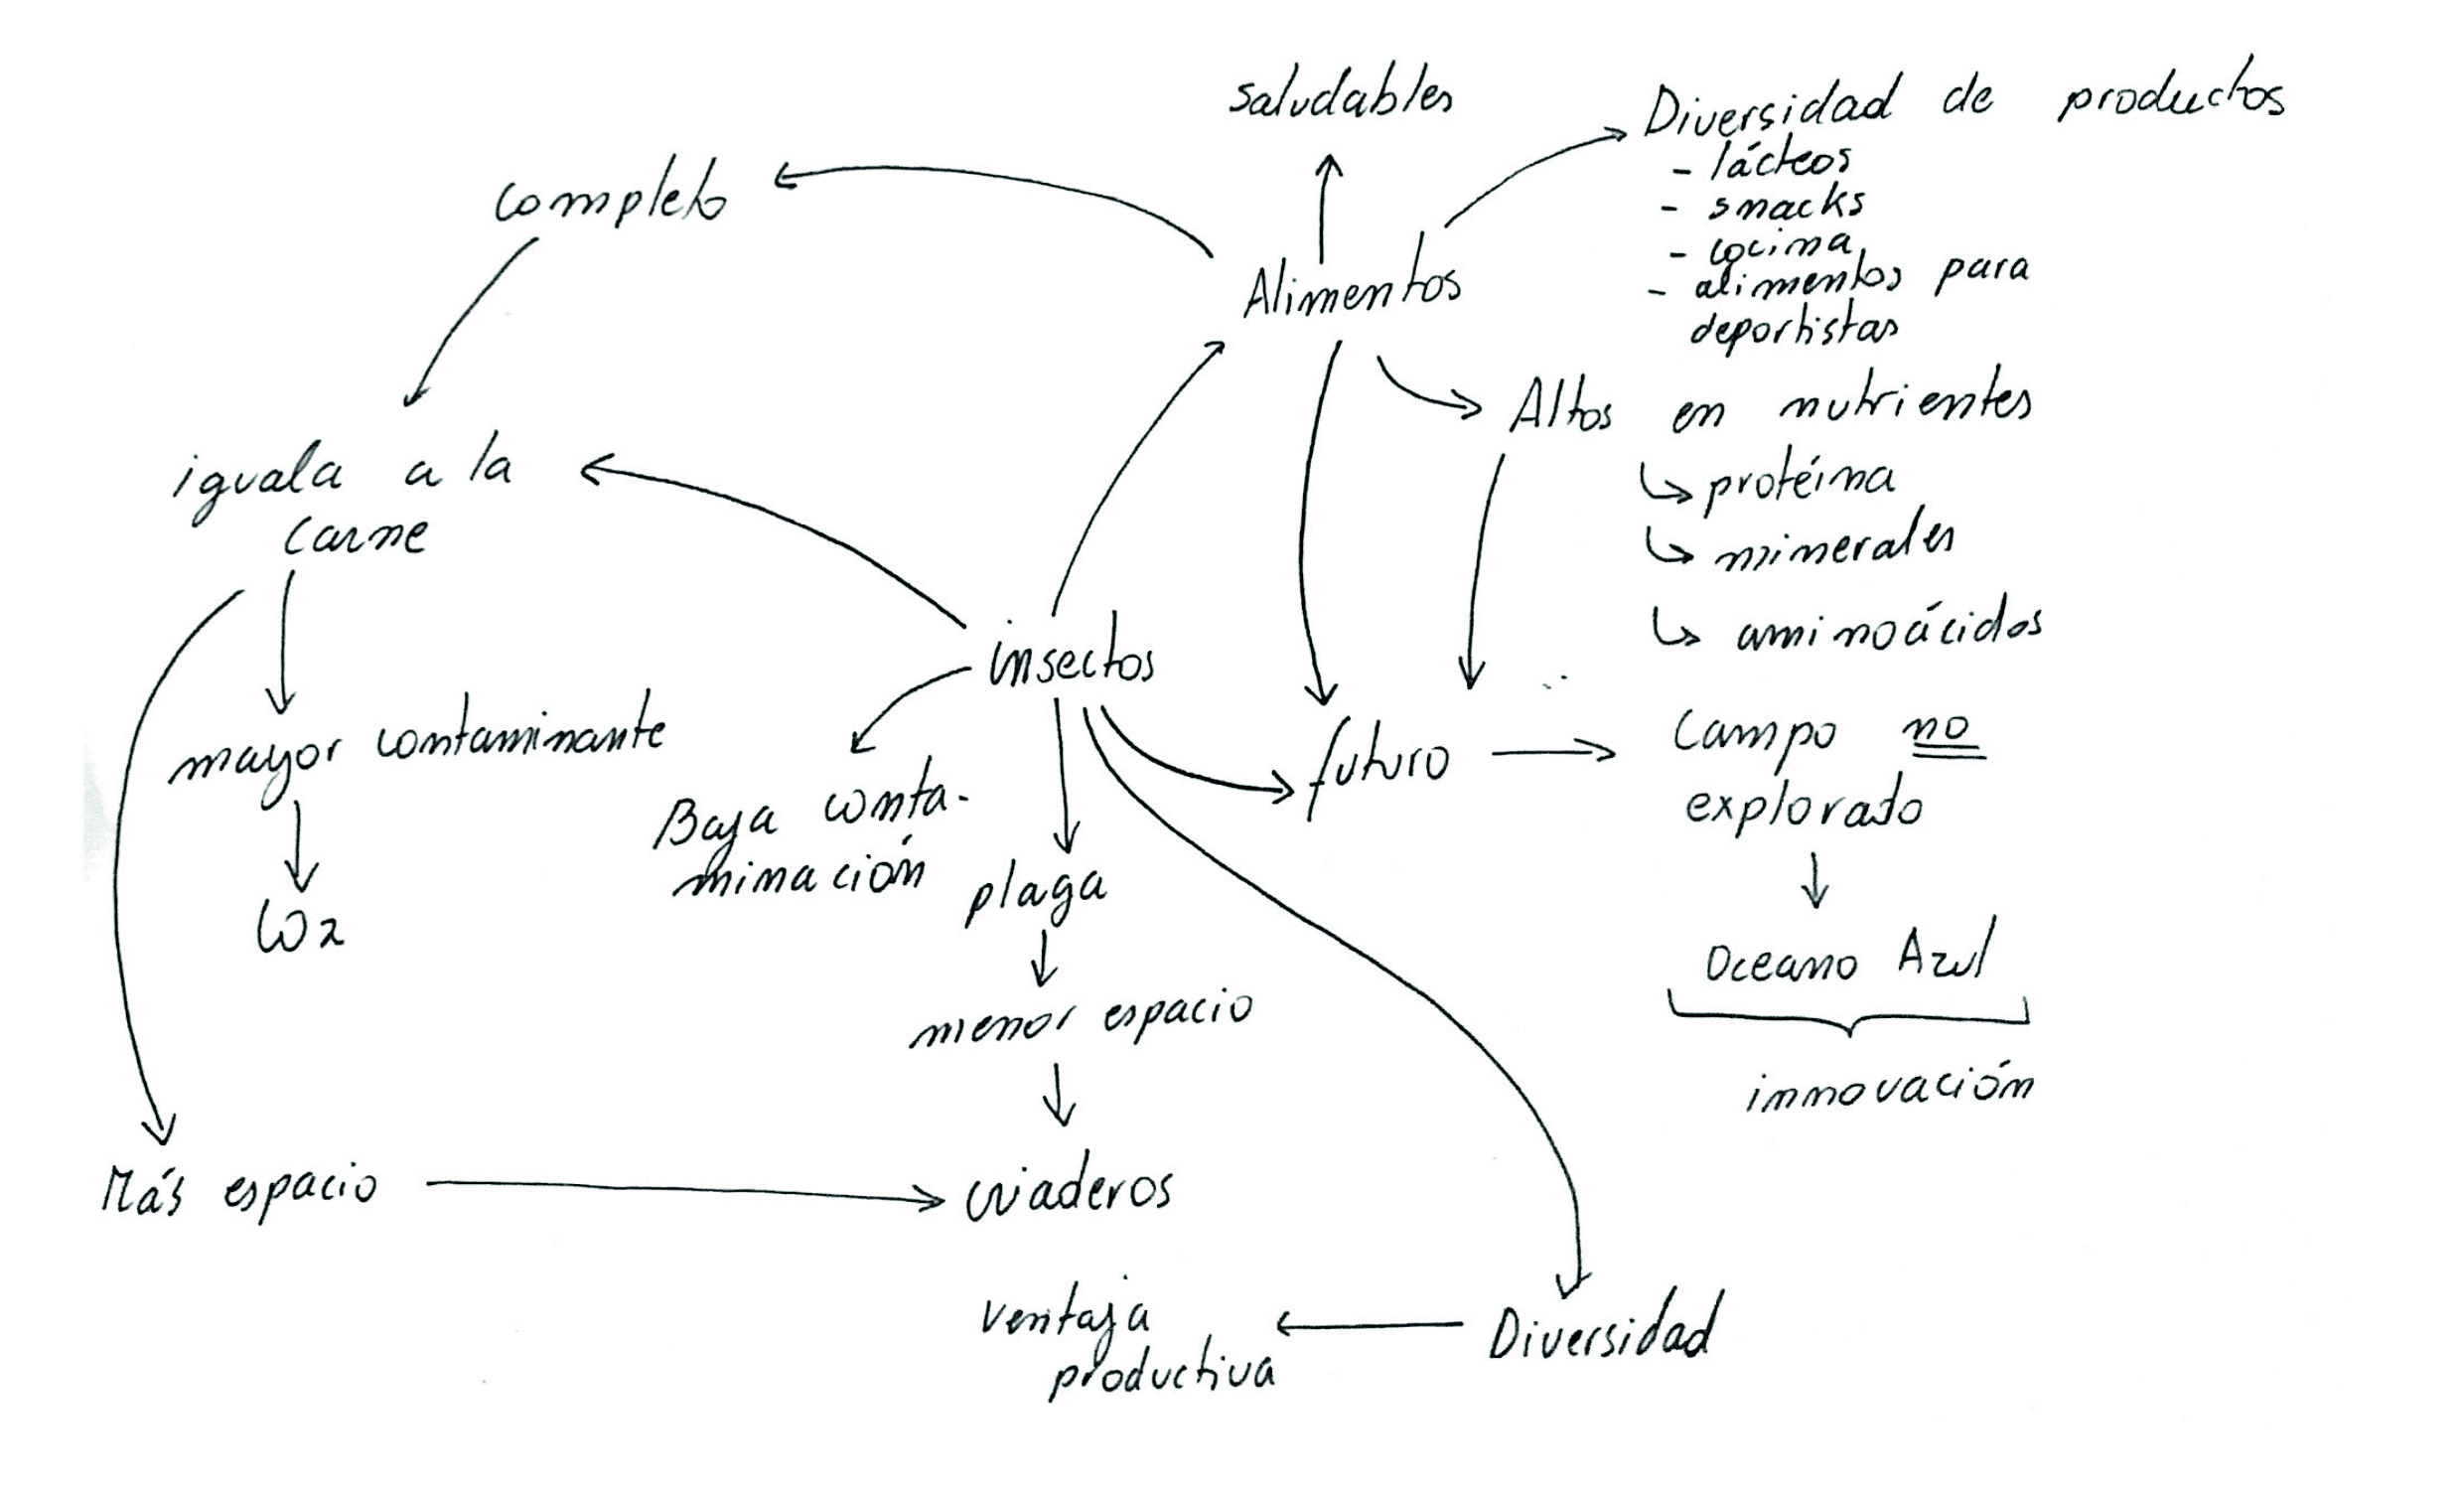 saludables
Diversidad de productos
- lácteos
- snacks
- cocina
- alimentos para
deportistas
completo
Alimentos
Altos en nutrientes
↳ protéina
↳ minerales
↳ aminoácidos
iguala a la
carne
insectos
mayor contaminante
CO2
Baja conta-
minación
plaga
futuro
Campo no
explorado
Oceano Azul
innovación
menor espacio
Más espacio
criaderos
ventaja
productiva
Diversidad